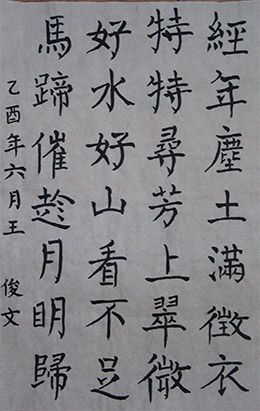 經年塵土滿徵衣
特特尋芳上翠微
好水好山看不足
馬蹄催趁月明歸
乙酉年六月王俊文